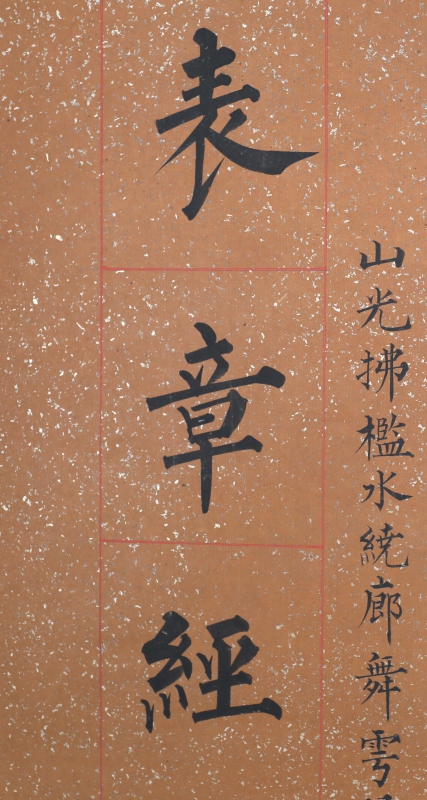 山光拂檻水繞廊舞雩
表章經